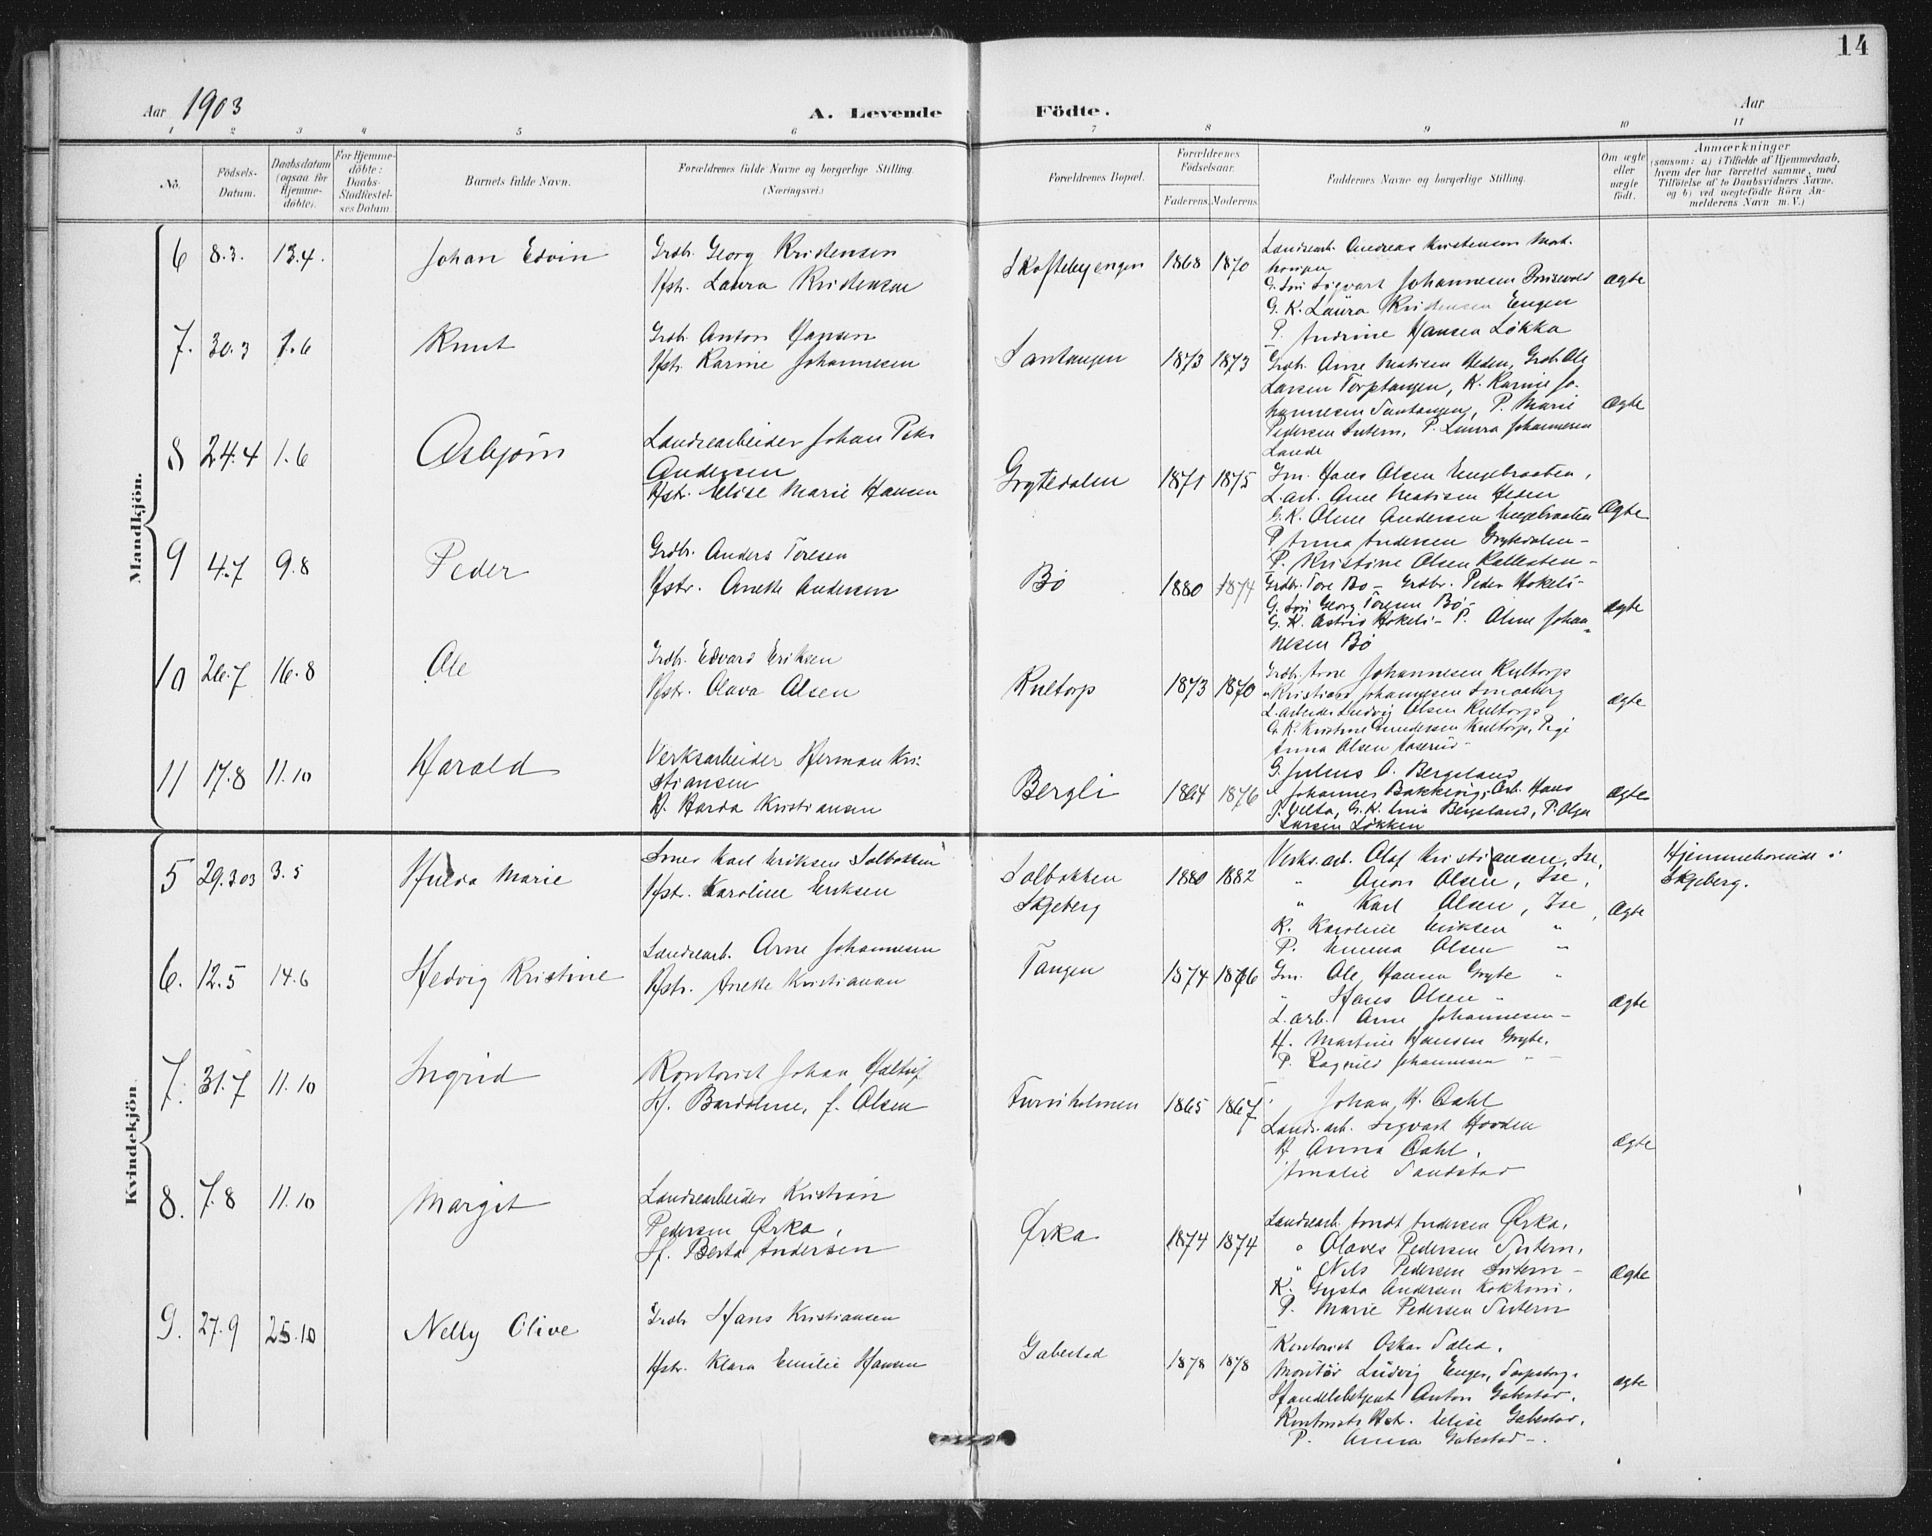 14
Aar 1903 A. Levende Födte. Aar
1 2 3 4 5 6 7 8 9 10 11
No. Födsels-Datum. Daabsdatum (ogsaa for Hjemmedöbte). For Hjemmedöbte: Daabs-Stadfæstelses Datum Barnets fulde Navn. Forældrenes fulde Navne og borgerlige Stilling. (Næringsvei.) Forældrenes Bopæl. Forældrenes Födselsaar. Faderens. Moderens. Faddernes Navne og borgerlige Stilling. Om ægte eller uægte födt. Anmærkninger (saasom: a) i Tilfælde af Hjemmedaab, hvem der har forrettet samme, med Tilföielse af to Daabsvidners Navne, og b) ved uægtefödte Börn Anmelderens Navn m. V.)
Mandkjön.
6 8.3. 13.4. Johan Edvin Grdb. Georg Kristensen
Hstr. Laura Kristensen
Skoftebyengen 1868 1870 Landsearb. Andreas Kristensen
G. Søn Sigvart Johannesen
G. K. Laura Kristensen Engen
P. Andrine Hansen Løkka
ægte
7. 30.3 1.6 Knut Grdb. Anton Hansen
Hstr. Karine Johannesen
Santangen 1873 1873 Grdb. Arne Matisen Heden, Grdb. Ole
Larsen Torptangen, K. Karine Jo-
hannesen Santangen, P. Marie
Pedersen P. Laura Johannesen
Lande
ægte
8 24.4 1.6 Asbjørn Landsearbeider Johan Peter
Andersen
Hstr. Elise Marie Hansen
Grytedalen 1871 1875 Gm. Hans Olsen Engebraaten,
L.arb. Arne Matisen Heden
G. K. Oline Andersen Engebraaten
P. Anna Andersen Grytedalen -
P. Kristine Olsen
Ægte
9 4.7 9.8 Peder Grdb. Anders Toresen
Hstr. Anette Andersen
Bø 1880 1874 Grdb. Tore Bø - Grdb. Peder Hokeli -
G. Søn Georg Toresen Bø -
G. K. Astrid Hokeli - P. Oline Johan-
nesen Bø
ægte
10 26.7 16.8 Ole Grdb. Edvard Eriksen
Hstr. Olava Olsen
Kultorp 1873 1870 Grdb. Arne Johannesen Kultorp
" Kristian Johannesen Smaaberg
L.arbeider Ludvig Olsen Kultorp
G. K. Kristine Gundersen Kultorp, Pige
Anna Olsen
ægte
11 17.8 11.10 Harald Verksarbeider Herman Kri-
stiansen
H. Harda Kristiansen
Bergli 1864 1876 G. Julius O. Bergsland
" Johannes Bakkevig, Arb. Hans
G. K. Bergsland, P. Olga
Larsen Løkken
Ægte
Kvindekjön
5 29.3 03 3.5 Hulda Marie Smed Karl Eriksen Solbakken
Hstr. Karoline Eriksen
Solbakken
Skjeberg
1880 1882 Verks.arb. Olaf Kristiansen, Ise,
" Anon Olsen, Ise,
" Karl Olsen, Ise,
K. Karoline Eriksen "
P. Emma Olsen "
Ægte Hjemmehørende i
Skjeberg.
6. 12.5 14.6 Hedvig Kristine Landsearb. Arne Johannesen
Hstr. Anette Kristiansen
Tangen 1874 1876 Gm. Ole Hansen Gryte "
" Hans Olsen "
L.arb. Arne Johannesen -
H. Martine Hansen Gryte,
P. Ragnild Johannesen "
Ægte
7. 31.7 11.10 Ingrid Kontorist Johan
H. Bardoline, f. Olsen
Furuholmen 1865 1867 Johan H. Dahl
Lands.arb. Sigvart Hovden
H Anna Dahl,
Amalie Sandstad
Ægte
8. 7.8 11.10 Margit Landsearbeider Kristian
Pedersen Ørka,
H. Berta Andersen
Ørka 1874 1874 Landsearb. Arndt Andersen Ørka,
" Olaves Pedersen
" Nils Pedersen
K. Gusta Andersen
P. Marie Pedersen
Ægte
9. 27.9 25.10 Nelly Olive Grdb Hans Kristiansen
Hstr. Klara Emilie Hansen
Gabestad 1878 1878 Kontorist Oskar
Montør Ludvig Enger, Sarpsborg,
Handelsbetjent Anton Gabestad,
Kontorists Hstr. Elise Gabestad,
P. Anna Gabestad -.
ægte